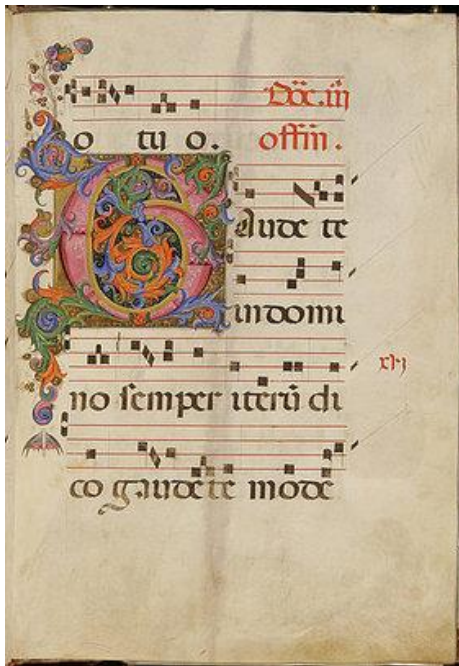 Dōc. iij
o tu o. offiñ.
GAude te
in domi
no semper iterū di
co gaudete mode